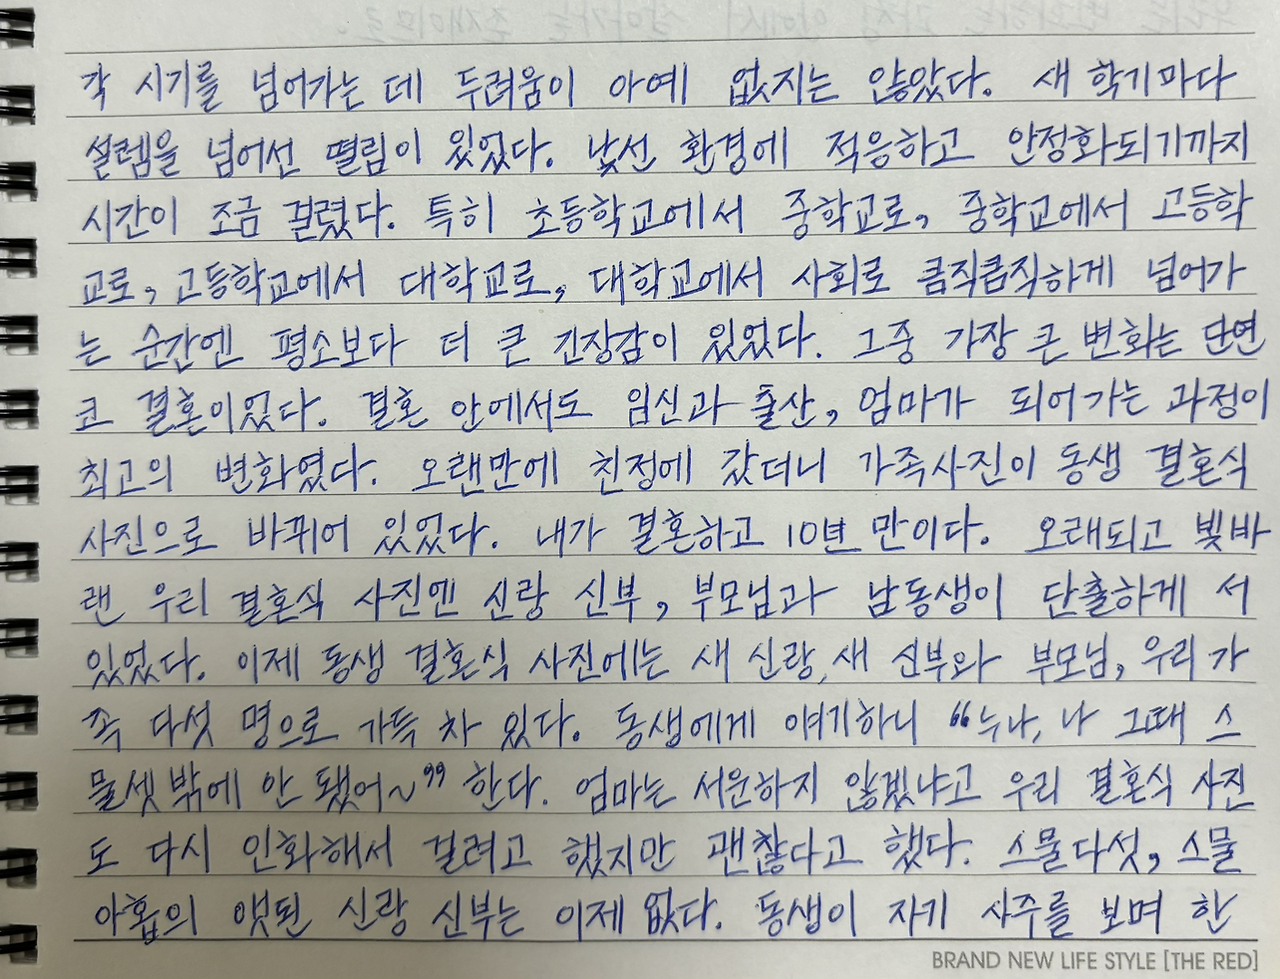 각 시기를 넘어가는 데 두려움이 아예 없지는 않았다. 새 학기마다
설렘을 넘어선 떨림이 있었다. 낯선 환경에 적응하고 안정화되기까지
시간이 조금 걸렸다. 특히 초등학교에서 중학교로, 중학교에서 고등학
교로, 고등학교에서 대학교로, 대학교에서 사회로 큼직큼직하게 넘어가
는 순간엔 평소보다 더 큰 긴장감이 있었다. 그중 가장 큰 변화는 단연
코 결혼이었다. 결혼 안에서도 임신과 출산, 엄마가 되어가는 과정이
최고의 변화였다. 오랜만에 친정에 갔더니 가족사진이 동생 결혼식
사진으로 바뀌어 있었다. 내가 결혼하고 10년 만이다. 오래되고 빛바
랜 우리 결혼식 사진엔 신랑 신부, 부모님과 남동생이 단출하게 서
있었다. 이제 동생 결혼식 사진에는 새 신랑, 새 신부와 부모님, 우리 가
족 다섯 명으로 가득 차 있다. 동생에게 얘기하니 “누나, 나 그때 스
물셋밖에 안 됐어~” 한다. 엄마는 서운하지 않겠냐고 우리 결혼식 사진
도 다시 인화해서 걸려고 했지만 괜찮다고 했다. 스물다섯, 스물
아홉의 앳된 신랑 신부는 이제 없다. 동생이 자기 사주를 보며 한
BRAND NEW LIFE STYLE [THE RED]